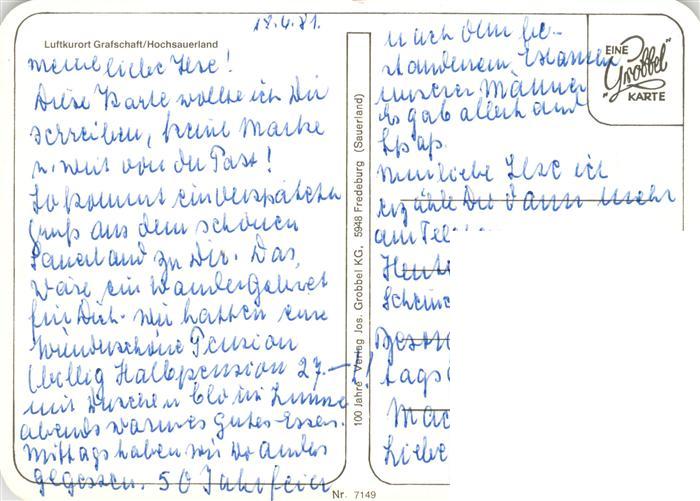 18.4.81.
Luftkurort Grafschaft/Hochsauerland
meine liebe Ilse!
Diese Karte wollte ich Dir
schreiben, keine Marke
u. weit von der Post!
So kommt ein verspäteter
Gruß aus dem schönen
Sauerland zu Dir. Das
wäre ein Wandergebiet
für Dich. Wir hatten eine
wunderschöne Pension
(billig Halbpension 27.-)!
mit Duschen Clo im Zimmer
abends warmes gutes Essen.
Mittags haben wir wo anders
gegessen. 50 Jahrfeier
100 Jahre Verlag Jos. Grobbel KG, 5948 Fredeburg (Sauerland)
Nr. 7149
EINE
"Grobbel"
KARTE
nach dem be-
standenem Examen
unserer Männer
Es gab allerhand
Spaß.
Meine liebe Ilse ich
erzähle Dir dann mehr
am Tele
Heut
Schein
tags
Mac
Liebe